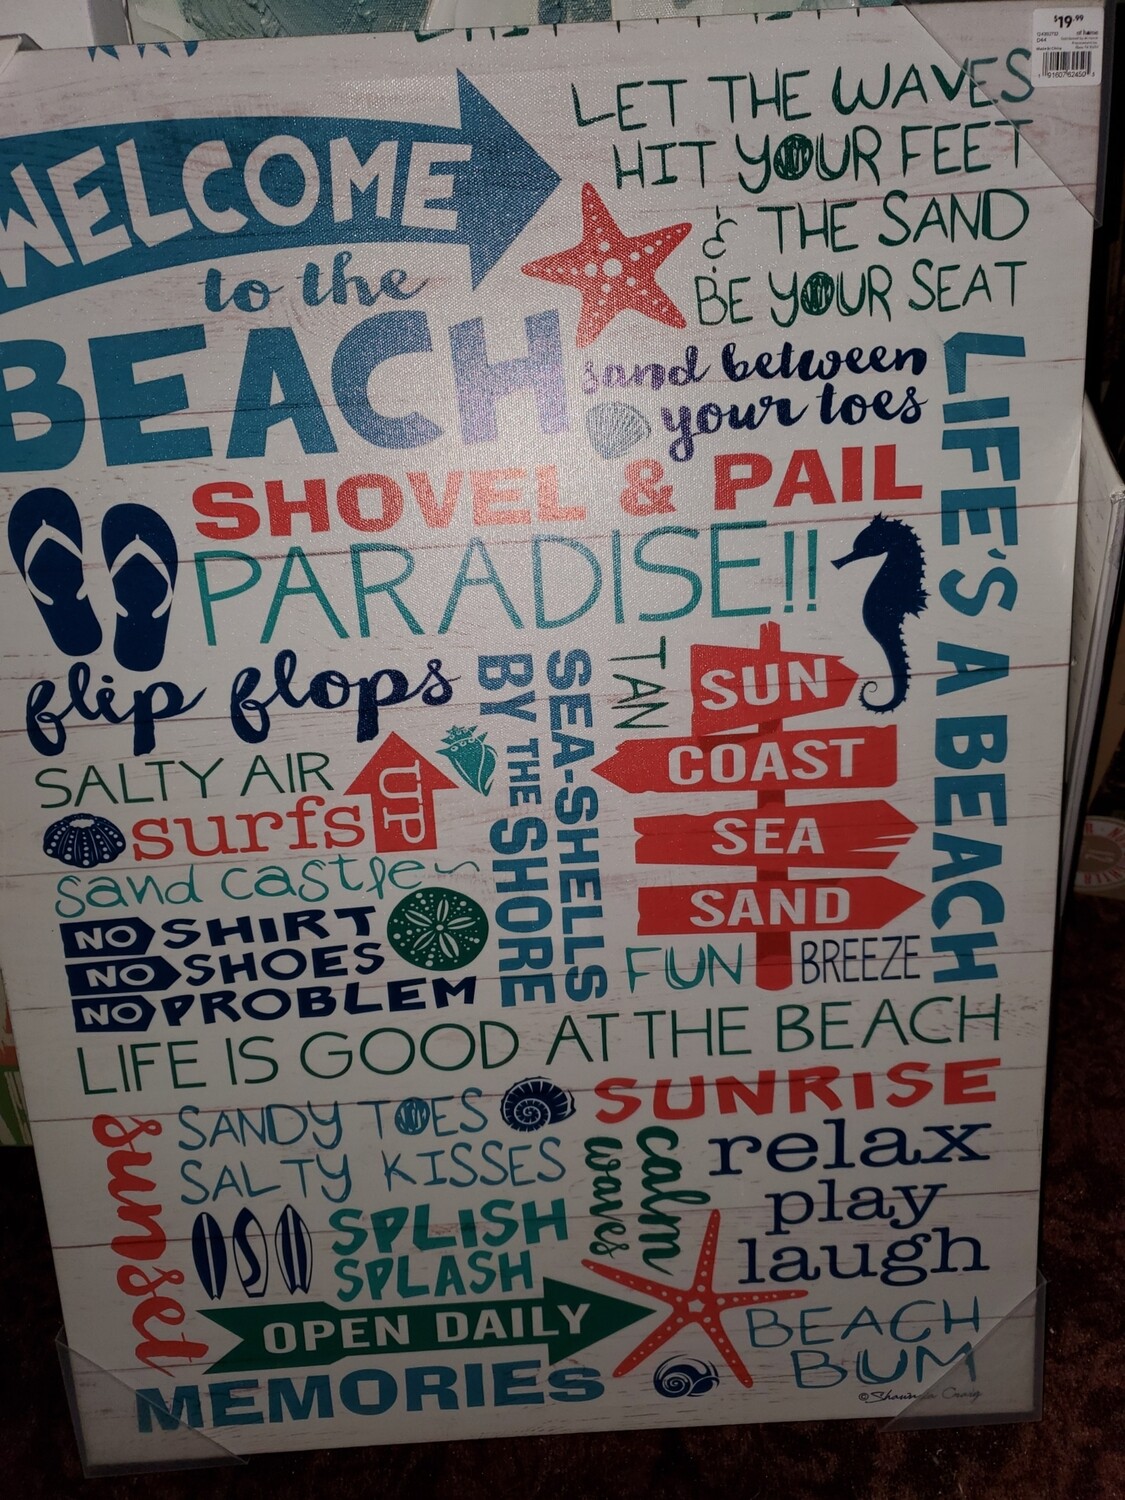 $19.99
at home
WELCOME
to the
BEACH
LET THE WAVES
HIT YOUR FEET
& THE SAND
BE YOUR SEAT
sand between
your toes
SHOVEL & PAIL
PARADISE!!
LIFE'S A BEACH
flip flops
SALTY AIR
surfs
UP
sand castle
NO SHIRT
NO SHOES
NO PROBLEM
SEA-SHELLS
BY THE SHORE
TAN
SUN
COAST
SEA
SAND
FUN
BREEZE
LIFE IS GOOD AT THE BEACH
sunset
SANDY TOES
SALTY KISSES
SPLISH
SPLASH
OPEN DAILY
MEMORIES
SUNRISE
calm
waves
relax
play
laugh
BEACH
BUM
© Craig